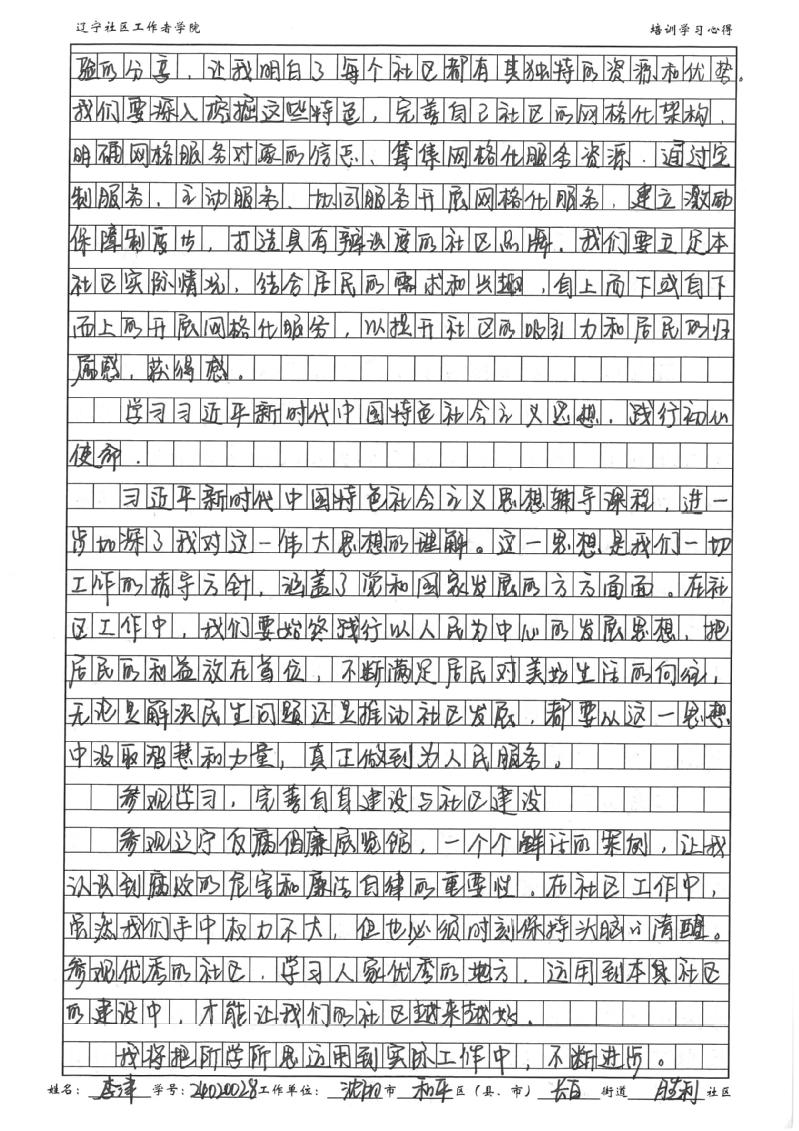 辽宁社区工作者学院 培训学习心得
验的分享，让我明白了每个社区都有其独特的资源和优势。
我们要深入挖掘这些特色，完善自己社区的网格化架构、
明确网格服务对象的信息、筹集网格化服务资源．通过定
制服务、主动服务、协同服务开展网格化服务，建立激励
保障制度步，打造具有辨识度的社区品牌．我们要立足本
社区实际情况，结合居民的需求和兴趣，自上而下或自下
而上的开展网格化服务，以提升社区的吸引力和居民的归
属感，获得感。
学习习近平新时代中国特色社会主义思想．践行初心
使命．
习近平新时代中国特色社会主义思想辅导课程，进一
步加深了我对这一伟大思想的理解。这一思想是我们一切
工作的指导方针，涵盖了党和国家发展的方方面面。在社
区工作中，我们要始终践行以人民为中心的发展思想，把
居民的利益放在首位，不断满足居民对美好生活的向往，
无论是解决民生问题还是推动社区发展，都要从这一思想
中汲取智慧和力量，真正做到为人民服务。
参观学习，完善自身建设与社区建设
参观辽宁反腐倡廉展览馆，一个个鲜活的案例，让我
认识到腐败的危害和廉洁自律的重要性．在社区工作中，
虽然我们手中权力不大，但也必须时刻保持头脑的清醒。
参观优秀的社区，学习人家优秀的地方，运用到本身社区
的建设中，才能让我们的社区越来越好．
我将把所学所思运用到实际工作中，不断进步。
姓名：李津 学号：24020028 工作单位：沈阳市 和平区（县、市） 长白街道 胜利社区